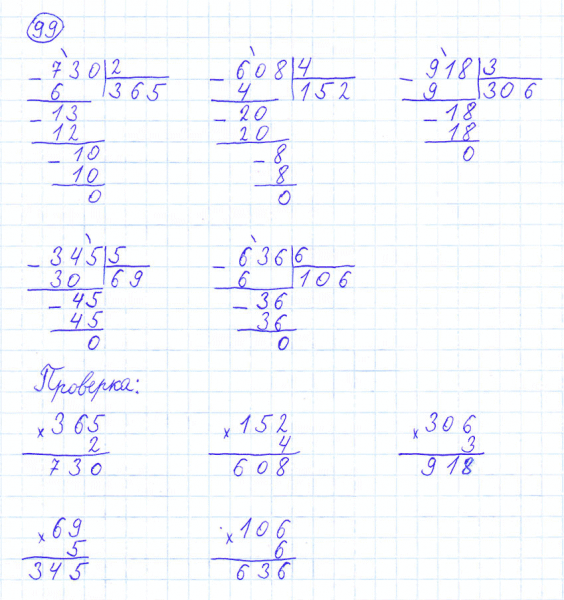 99
- 730 | 2   - 608 | 4   - 918 | 3
6   365   4   152   9   306
- 13   - 20   - 18
12   20   18
- 10   - 8   0
10   8
0   0
- 345 | 5   - 636 | 6
30   69   6   106
- 45   - 36
45   36
0   0
Проверка:
× 365   × 152   × 306
2   4   3
730   608   918
× 69   × 106
5   6
345   636